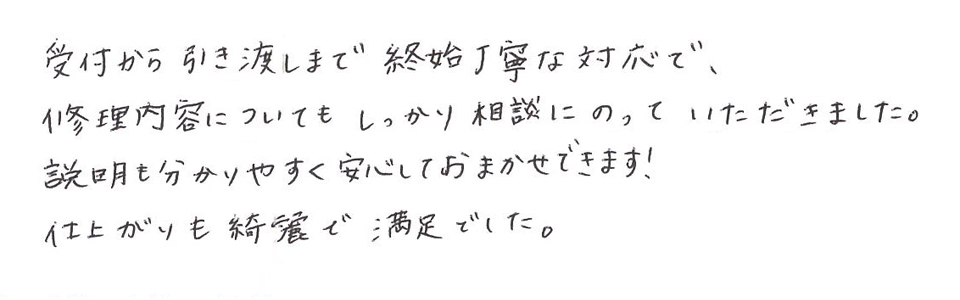 受付から引き渡しまで終始丁寧な対応で、
修理内容についてもしっかり相談にのっていただだきました。
説明も分かりやすく安心しておまかせできます!
仕上がりも綺麗で満足でした。